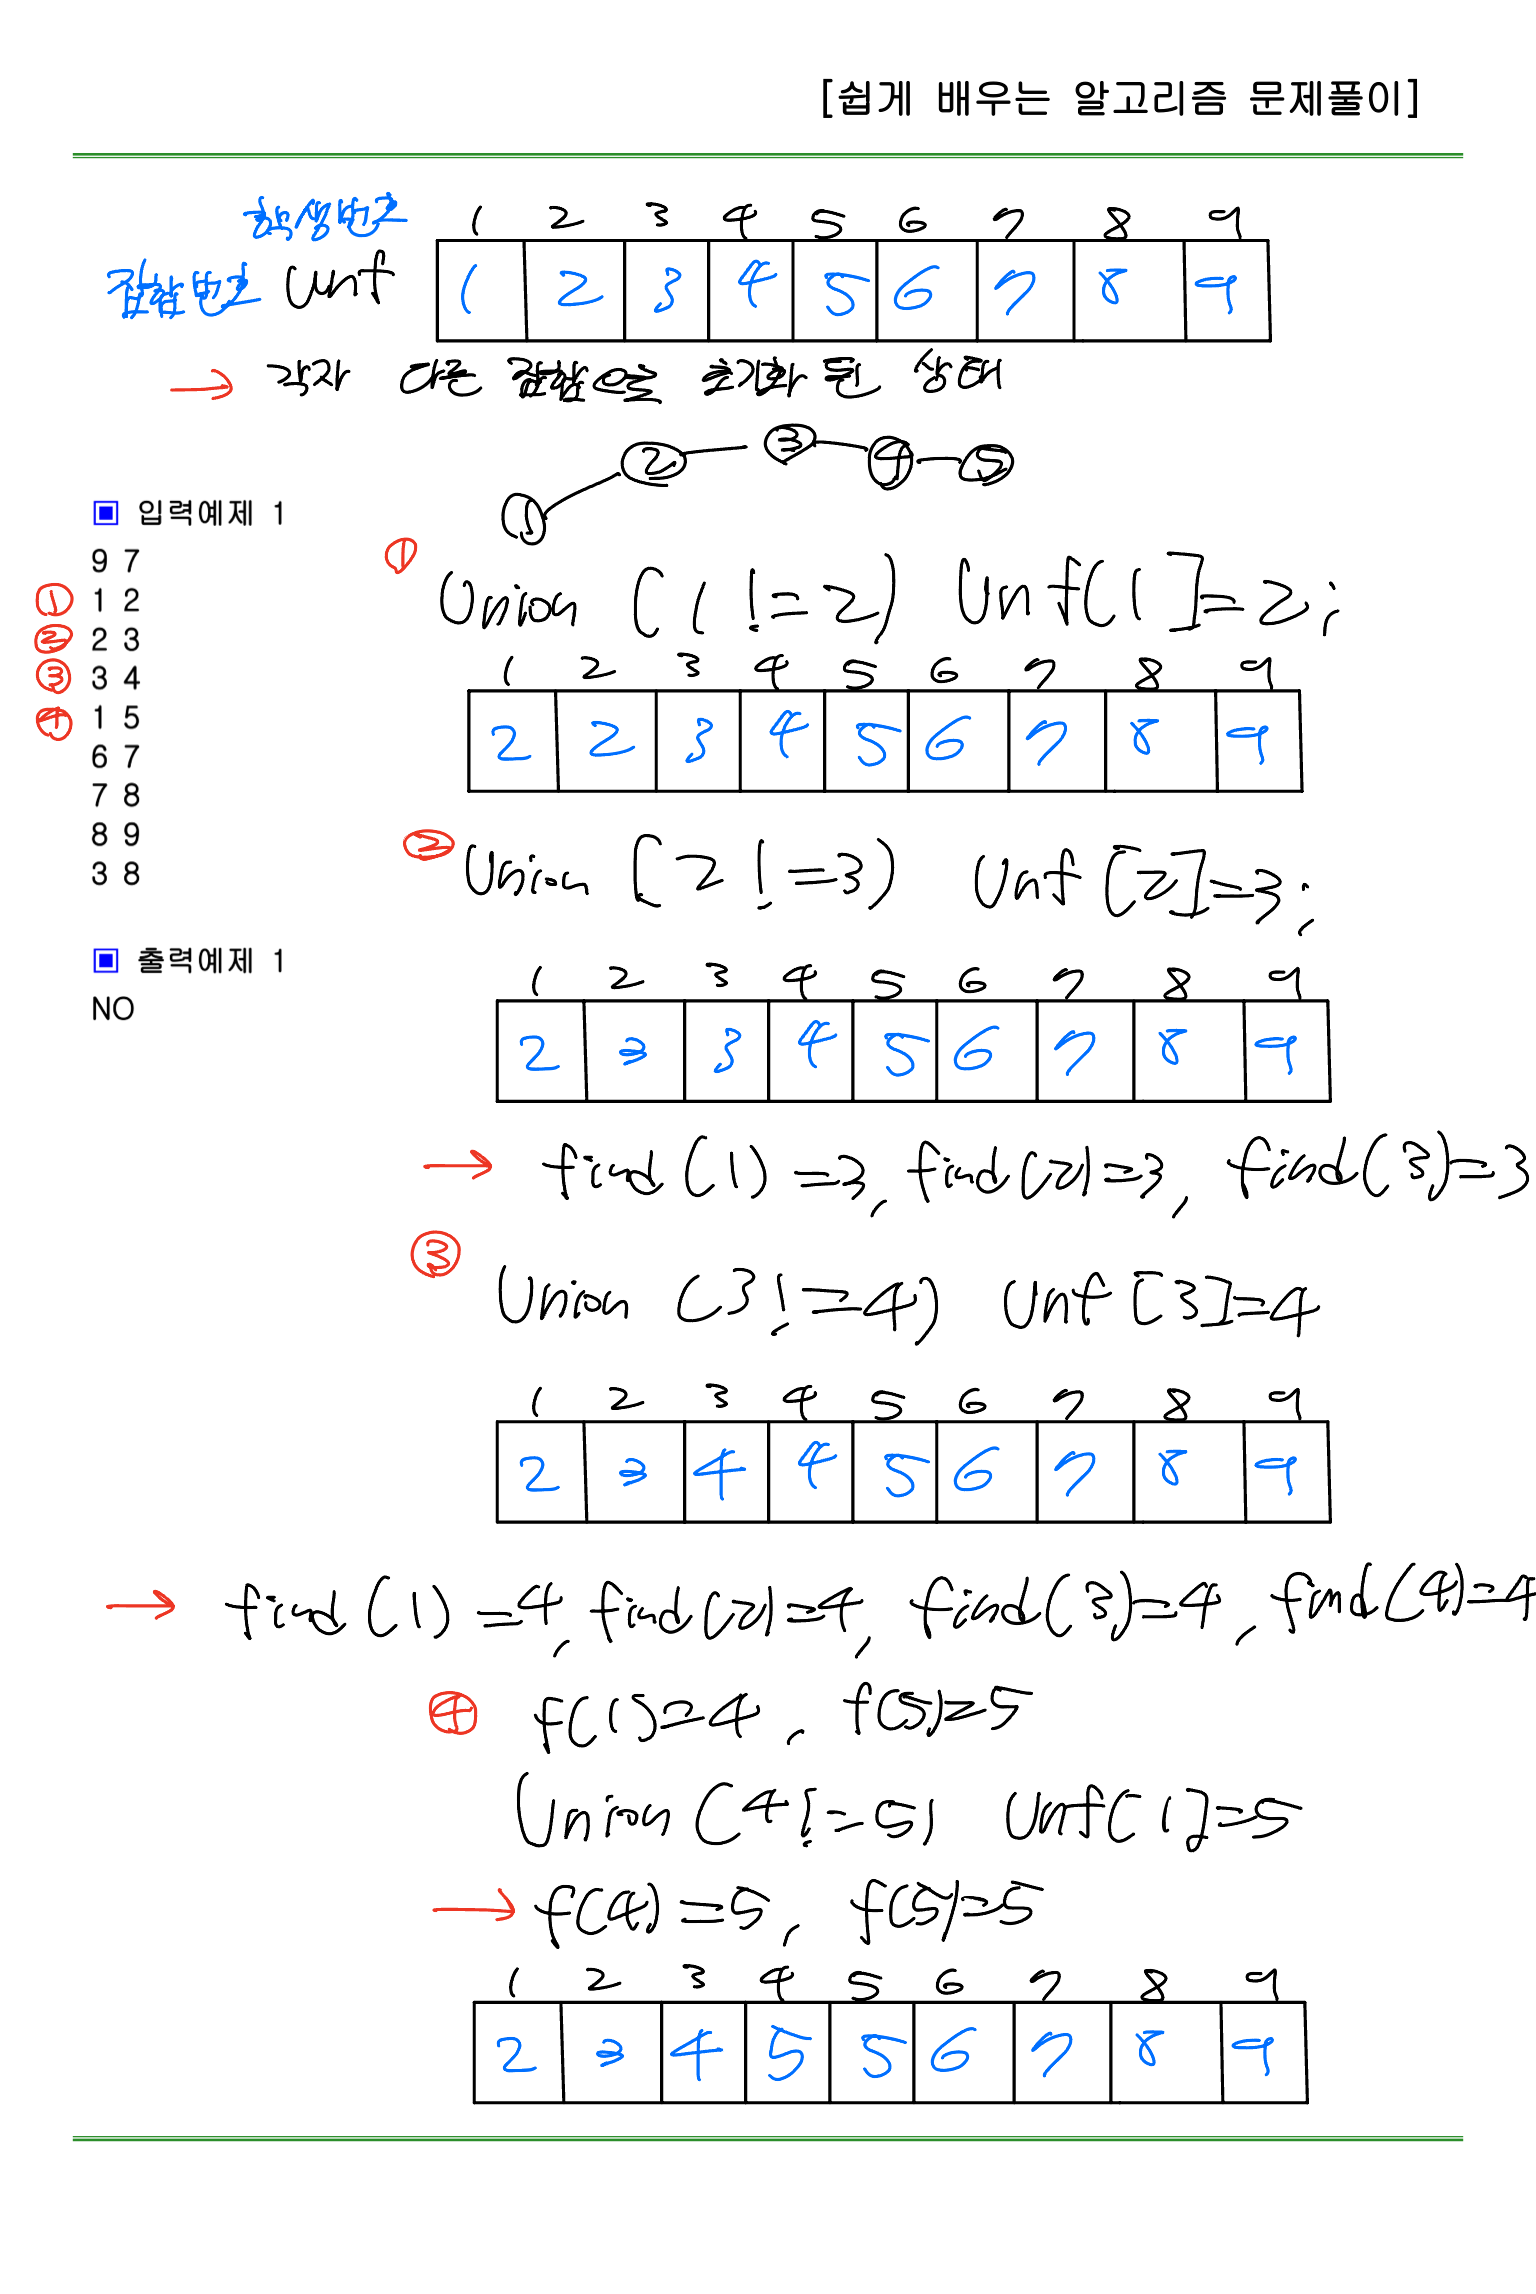 [쉽게 배우는 알고리즘 문제풀이]
학생번호 1 2 3 4 5 6 7 8 9
집합번호 unf 1 2 3 4 5 6 7 8 9
→ 각자 다른 집합으로 초기화 된 상태
① ② ③ ④ ⑤
▣ 입력예제 1
9 7
① 1 2
② 2 3
③ 3 4
④ 1 5
6 7
7 8
8 9
3 8
▣ 출력예제 1
NO
① Union (1 != 2) Unf[1]=2;
1 2 3 4 5 6 7 8 9
2 2 3 4 5 6 7 8 9
② Union (2 != 3) Unf[2]=3;
1 2 3 4 5 6 7 8 9
2 3 3 4 5 6 7 8 9
→ find(1)=3, find(2)=3, find(3)=3
③ Union (3 != 4) Unf[3]=4
1 2 3 4 5 6 7 8 9
2 3 4 4 5 6 7 8 9
→ find(1)=4, find(2)=4, find(3)=4, find(4)=4
④ f(1)=4, f(5)=5
Union (4 != 5) Unf[1]=5
→ f(4)=5, f(5)=5
1 2 3 4 5 6 7 8 9
2 3 4 5 5 6 7 8 9